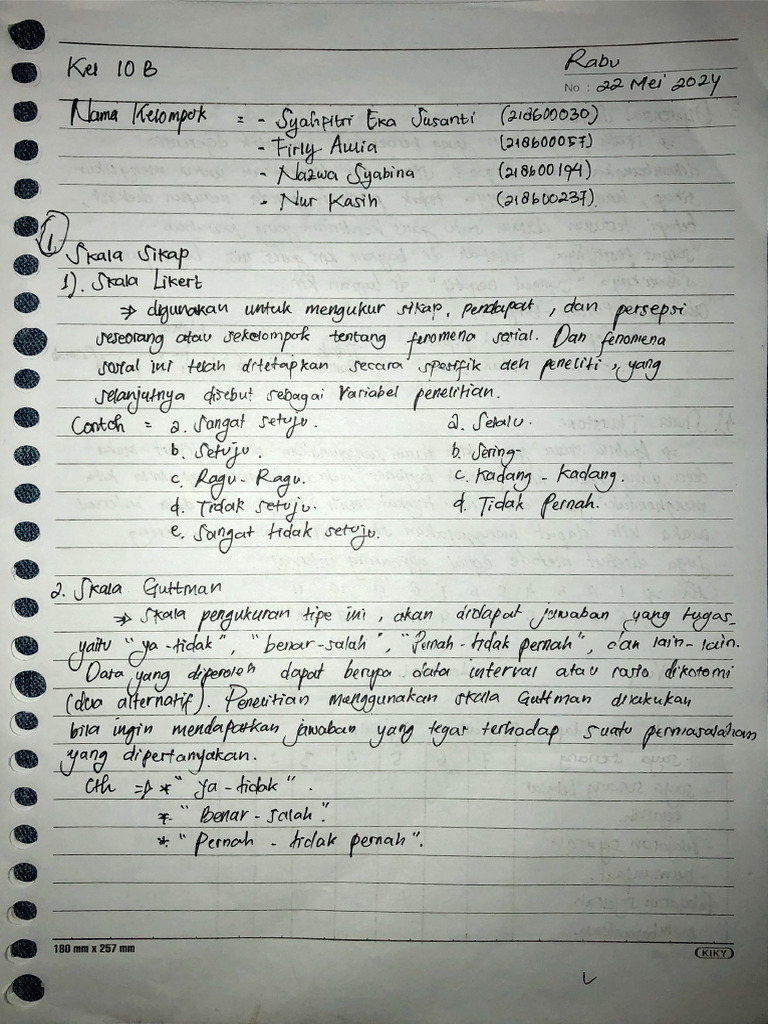 Kel 10 B
Rabu
No.: 22 Mei 2024
Nama Kelompok = - Syahfitri Eka Susanti (218600030)
- Firly Aulia (218600057)
- Nazwa Syabina (218600194)
- Nur Kasih (218600237)
1. Skala Sikap
1). Skala Likert
⇒ digunakan untuk mengukur sikap, pendapat, dan persepsi
seseorang atau sekelompok tentang fenomena sosial. Dan fenomena
sosial ini telah ditetapkan secara spesifik oleh peneliti, yang
selanjutnya disebut sebagai variabel penelitian.
Contoh = a. Sangat setuju. a. Selalu.
b. Setuju. b. Sering
c. Ragu - Ragu. c. Kadang - Kadang.
d. Tidak setuju. d. Tidak Pernah.
e. Sangat tidak setuju.
2. Skala Guttman
⇒ Skala pengukuran tipe ini, akan didapat jawaban yang tugas,
yaitu "ya - tidak", "benar - salah", "Pernah - tidak pernah", dan lain - lain.
Data yang diperoleh dapat berupa data interval atau rasio dikotomi
(dua alternatif). Penelitian menggunakan skala Guttman dilakukan
bila ingin mendapatkan jawaban yang tegas terhadap suatu permasalahan
yang dipertanyakan.
Cth ⇒ * "ya - tidak".
* "Benar - salah".
* "Pernah - tidak pernah".
180 mm x 257 mm
KIKY